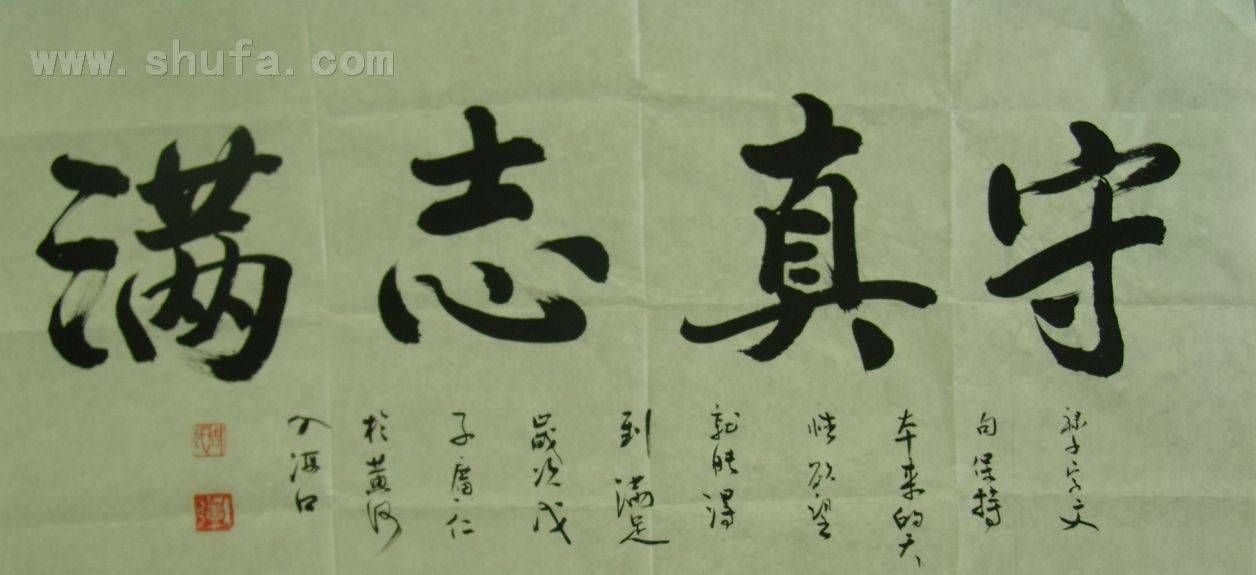 www.shufa.com
守真志满
录千字文
句保持
本来的天
性欲望
就能得
到满足
歲次戊
子廣仁
於黄河
入海口